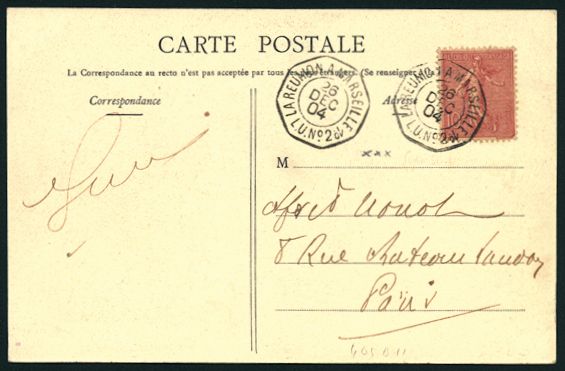 CARTE POSTALE
La Correspondance au recto n'est pas acceptée par tous les pays étrangers. (Se renseigner
Correspondance
Adresse
LA REUNION A MARSEILLE
26
DEC
04
L.U.Nº2
LA REUNION A MARSEILLE
26
DEC
04
L.U.Nº2
10
M
xxx
Alfred
8 Rue Chateau Landon
Paris